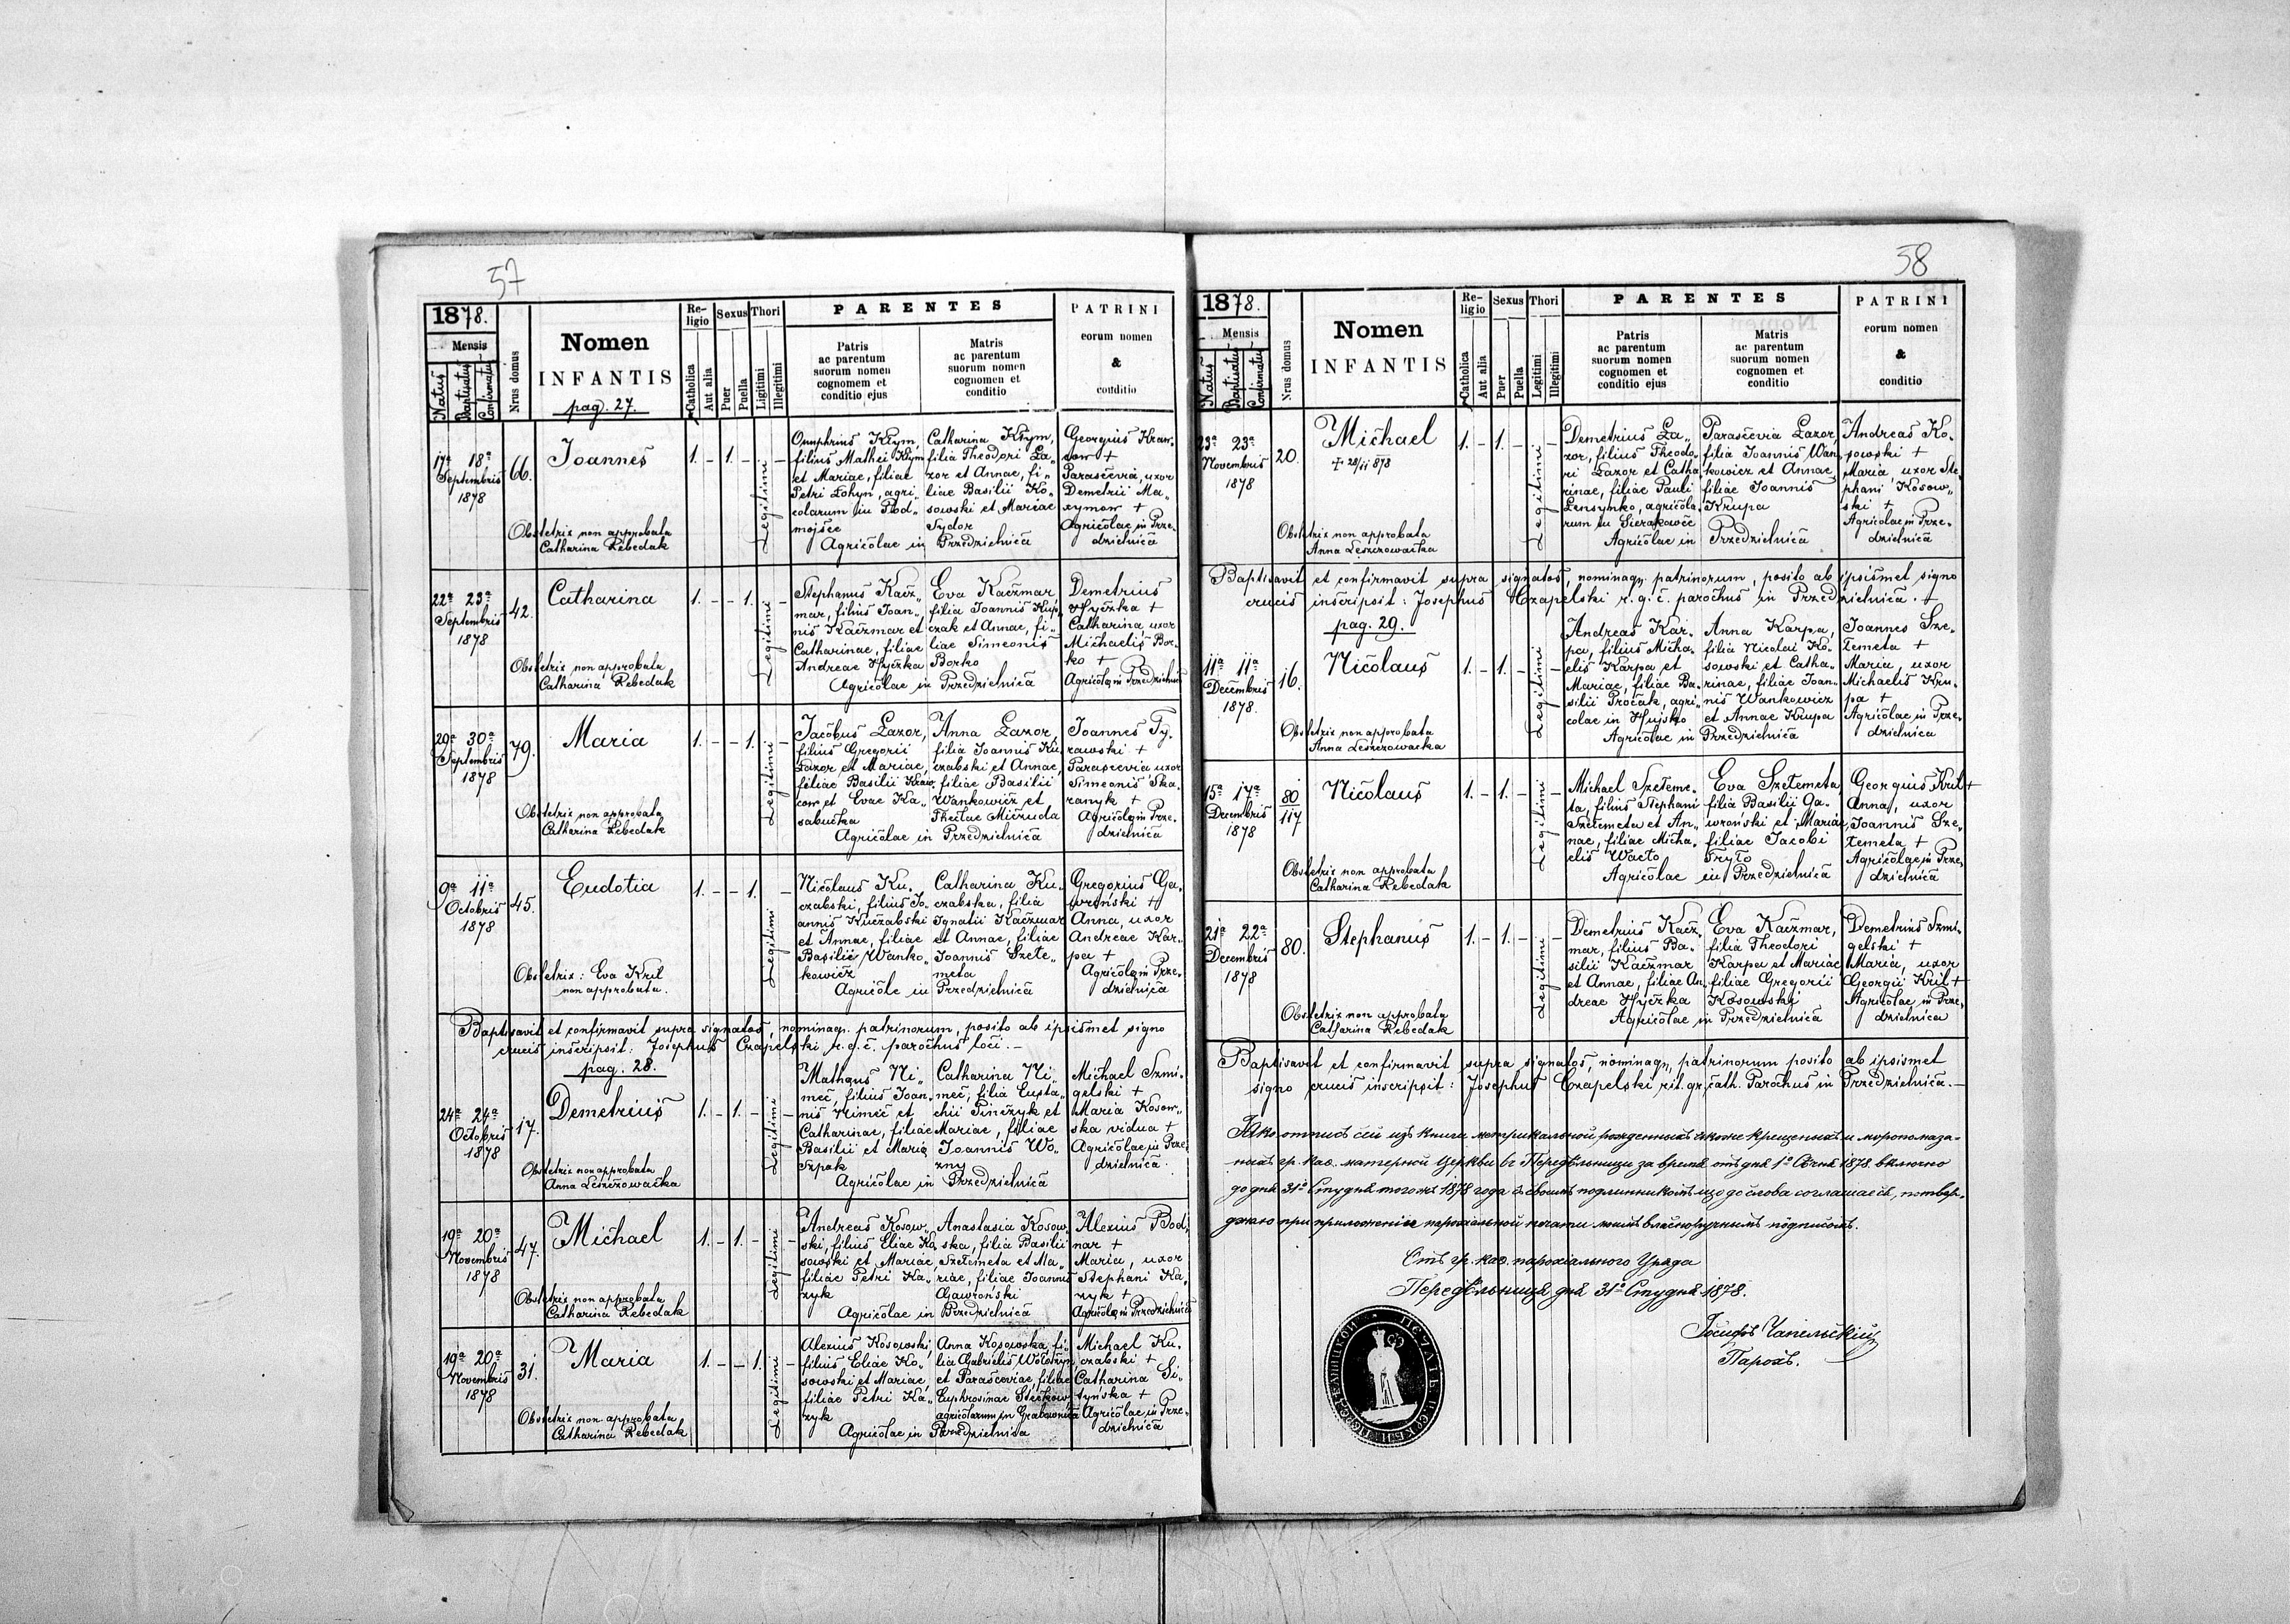 57
1878.
Mensis
Natus
Baptisatus
Confirmatus
Nrus domus
Nomen
INFANTIS
pag. 27.
Religio
Catholica
Aut alia
Sexus
Puer
Puella
Thori
Ligitimi
Illegitimi
PARENTES
Patris
ac parentum
suorum nomen
cognomem et
conditio ejus
Matris
ac parentum
suorum nomen
cognomen et
conditio
PATRINI
eorum nomen
&
conditio
17a 18a
Septembris
1878
66.
Joannes
1. - 1. - -
Legitimi
Obstetrix non approbata
Catharina Rebedak
Onuphrius Kłym,
filius Mathei Kłym
et Mariae, filiae
Petri Łohyn, agri„
colarum in Pod„
mojsce
Catharina Kłym,
filia Theodori La„
zor et Annae, fi„
liae Basilii Ko„
sowski et Mariae
Sydor
Agricolae in Przedzielnica
Georgius Kraw„
cow +
Parascevia, uxor
Demetrii Ma„
xymow +
Agricolae in Prze„
dzielnica
22a 23a
Septembris
1878
42.
Catharina
1. - - 1. -
Legitimi
Obstetrix non approbata
Catharina Rebedak
Stephanus Kacz„
mar, filius Joan„
nis Kaczmar et
Catharinae, filiae
Andreae Hyczka
Eva Kaczmar,
filia Joannis Kup„
czak et Annae, fi„
liae Simeonis
Borko
Agricolae in Przedzielnica
Demetrius
Hyczka +
Catharina uxor
Michaelis Bor„
ko +
Agricolae in Przedzielnica
29a 30a
Septembris
1878
79.
Maria
1. - - 1. -
Legitimi
Obstetrix non approbata
Catharina Rebedak
Jacobus Lazor,
filius Gregorii
Lazor et Mariae,
filiae Basilii Kraw„
cow et Evae Ka„
sabucka
Anna Lazor,
filia Joannis Ku„
czabski et Annae,
filiae Basilii
Wankowicz et
Theclae Miczuda
Agricolae in Przedzielnica
Joannes Ty„
rawski +
Parascevia uxor
Simeonis Ska„
ranyk +
Agricolae in Prze„
dzielnica
9a 11a
Octobris
1878
45.
Eudotia
1. - - 1. -
Legitimi
Obstetrix: Eva Kril
non approbata.
Nicolaus Ku„
czabski, filius Jo„
annis Kuczabski
et Annae, filiae
Basilii Wanko„
kowicz
Catharina Ku„
czabska, filia
Ignatii Kaczmar
et Annae, filiae
Joannis Szete„
meta
Agricolae in Przedzielnica
Gregorius Ga„
wronski +
Anna, uxor
Andreae Kar„
pa +
Agricolae in Prze„
dzielnica
Baptisavit et confirmavit supra signatos, nominaq. patrinorum, posito ab ipsismet signo
crucis inscripsit: Josephus Czapelski r. g. c. parochus loci. -
pag. 28.
24a 24a
Octobris
1878
17.
Demetrius
1. - 1. - -
Legitimi
Obstetrix non approbata
Anna Leszczowacka
Matheus Ni„
mec, filius Joan„
nis Nimec et
Catharinae, filiae
Basilii et Maria
Szpak
Catharina Ni„
mec, filia Eusta„
chii Pinczyk et
Mariae, filiae
Joannis Wo„
zny
Agricolae in Przedzielnica
Michael Szmi„
gelski +
Maria Kosow„
ska vidua +
Agricolae in Prze„
dzielnica
19a 20a
Novembris
1878
47.
Michael
1. - 1. - -
Legitimi
Obstetrix non approbata
Catharina Rebedak
Andreas Kosow„
ski, filius Eliae Ko„
sowski et Mariae,
filiae Petri Ka„
zyk
Anastasia Kosow„
ska, filia Basilii
Szetemeta et Ma„
riae, filiae Joannis
Gawronski
Agricolae in Przedzielnica
Alexius Bod„
nar +
Maria, uxor
Stephani Ka„
zyk +
Agricolae in Przedzielnica
19a 20a
Novembris
1878
31.
Maria
1. - - 1. -
Legitimi
Obstetrix non approbata
Catharina Rebedak
Alexius Kosowski,
filius Eliae Ko„
sowski et Mariae,
filiae Petri Ka„
zyk
Anna Kosowska, fi„
lia Gabrielis Wołoszyn
et Parasceviae, filiae
Euphrosinae Steckow
agricolarum in Grabownica
Agricolae in Przedzielnica
Michael Ku„
czabski +
Catharina Si„
tynska +
Agricolae in Prze„
dzielnica
58
1878.
Mensis
Natus
Baptisatus
Confirmatus
Nrus domus
Nomen
INFANTIS
Religio
Catholica
Aut alia
Sexus
Puer
Puella
Thori
Legitimi
Illegitimi
PARENTES
Patris
ac parentum
suorum nomen
cognomen et
conditio ejus
Matris
ac parentum
suorum nomen
cognomen et
conditio
PATRINI
eorum nomen
&
conditio
23a 23a
Novembris
1878
20.
Michael
+ 28/11 878
1. - 1. - -
Legitimi
Obstetrix non approbata
Anna Leszczowacka
Demetrius La„
zor, filius Theodo„
ri Lazor et Catha„
rinae, filiae Pauli
Lensynko, agricola„
rum in Sierakowce
Parascevia Lazor,
filia Joannis Wan„
kowicz et Annae
filiae Joannis
Krupa
Agricolae in Przedzielnica
Andreas Ko„
sowski +
Maria uxor Ste„
phani Kosow„
ski +
Agricolae in Prze„
dzielnica
Baptisavit et confirmavit supra signatos, nominaq. patrinorum, posito ab ipsismet signo
crucis inscripsit: Josephus Czapelski r. g. c. parochus in Przedzielnica. +
pag. 29.
11a 11a
Decembris
1878.
16.
Nicolaus
1. - 1. - -
Legitimi
Obstetrix non approbata
Anna Leszczowacka
Andreas Kar„
pa, filius Micha„
elis Karpa et
Mariae, filiae Ba„
silii Procak, agri„
colae in Hujsko
Anna Karpa,
filia Nicolai Ko„
sowski et Catha„
rinae, filiae Joan„
nis Wankowicz
et Annae Krupa
Agricolae in Przedzielnica
Joannes Sze„
temeta +
Maria, uxor
Michaelis Kru„
pa +
Agricolae in Prze„
dzielnica
15a 17a
Decembris
1878
80
117
Nicolaus
1. - 1. - -
Legitimi
Obstetrix non approbata
Catharina Rebedak
Michael Szeteme„
ta, filius Stephani
Szetemeta et An„
nae, filiae Micha„
elis Wacto
Eva Szetemeta,
filia Basilii Ga„
wronski et Mariae,
filiae Jacobi
Fryto
Agricolae in Przedzielnica
Georgius Kril +
Anna, uxor
Joannis Sze„
temeta +
Agricolae in Prze„
dzielnica
21a 22a
Decembris
1878
80.
Stephanus
1. - 1. - -
Legitimi
Obstetrix non approbata
Catharina Rebedak
Demetrius Kacz„
mar, filius Ba„
silii Kaczmar
et Annae, filiae An„
dreae Hyczka
Eva Kaczmar,
filia Theodori
Karpa et Mariae,
filiae Gregorii
Kosowski
Agricolae in Przedzielnica
Demetrius Szmi„
gelski +
Maria, uxor
Georgii Kril +
Agricolae in Prze„
dzielnica
Baptisavit et confirmavit supra signatos, nominaq. patrinorum posito ab ipsismet
signo crucis inscripsit: Josephus Czapelski rit. gr. cath. Parochus in Przedzielnica. -
Яко отписъ сей изъ книги метрикальной рожденныхъ также крещеныхъ и миропомаза-
ныхъ гр. кат. матерной Церкви въ Передѣльници за время отъ дня 1о Сѣчня 1878 включно
до дня 31о Студня того жъ 1878 года съ своимъ подлинникомъ що до слова соглашаеся, потвер-
джаю при приложеніи парохіальной печати моимъ власноручнымъ подписомъ.
Отъ гр. кат. парохіального Уряда
Передѣльниця дня 31о Студня 1878.
Іосифъ Чапельскій
Парохъ.